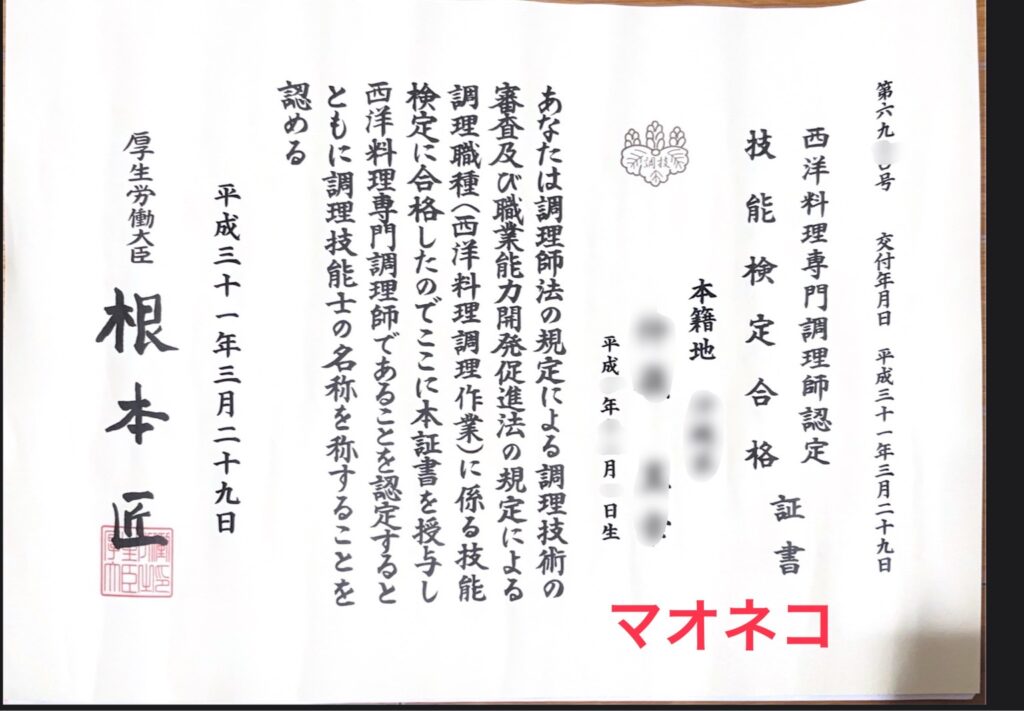 第六九 号 交付年月日 平成三十一年三月二十九日
西洋料理専門調理師認定
技能検定合格
証書
本籍地
平成 年 月 日生
調技
あなたは調理師法の規定による調理技術の
審査及び職業能力開発促進法の規定による
調理職種(西洋料理調理作業)に係る技能
検定に合格したのでここに本証書を授与し
西洋料理専門調理師であることを認定すると
ともに調理技能士の名称を称することを
認める
平成三十一年三月二十九日
厚生労働大臣 根本匠
マオネコ